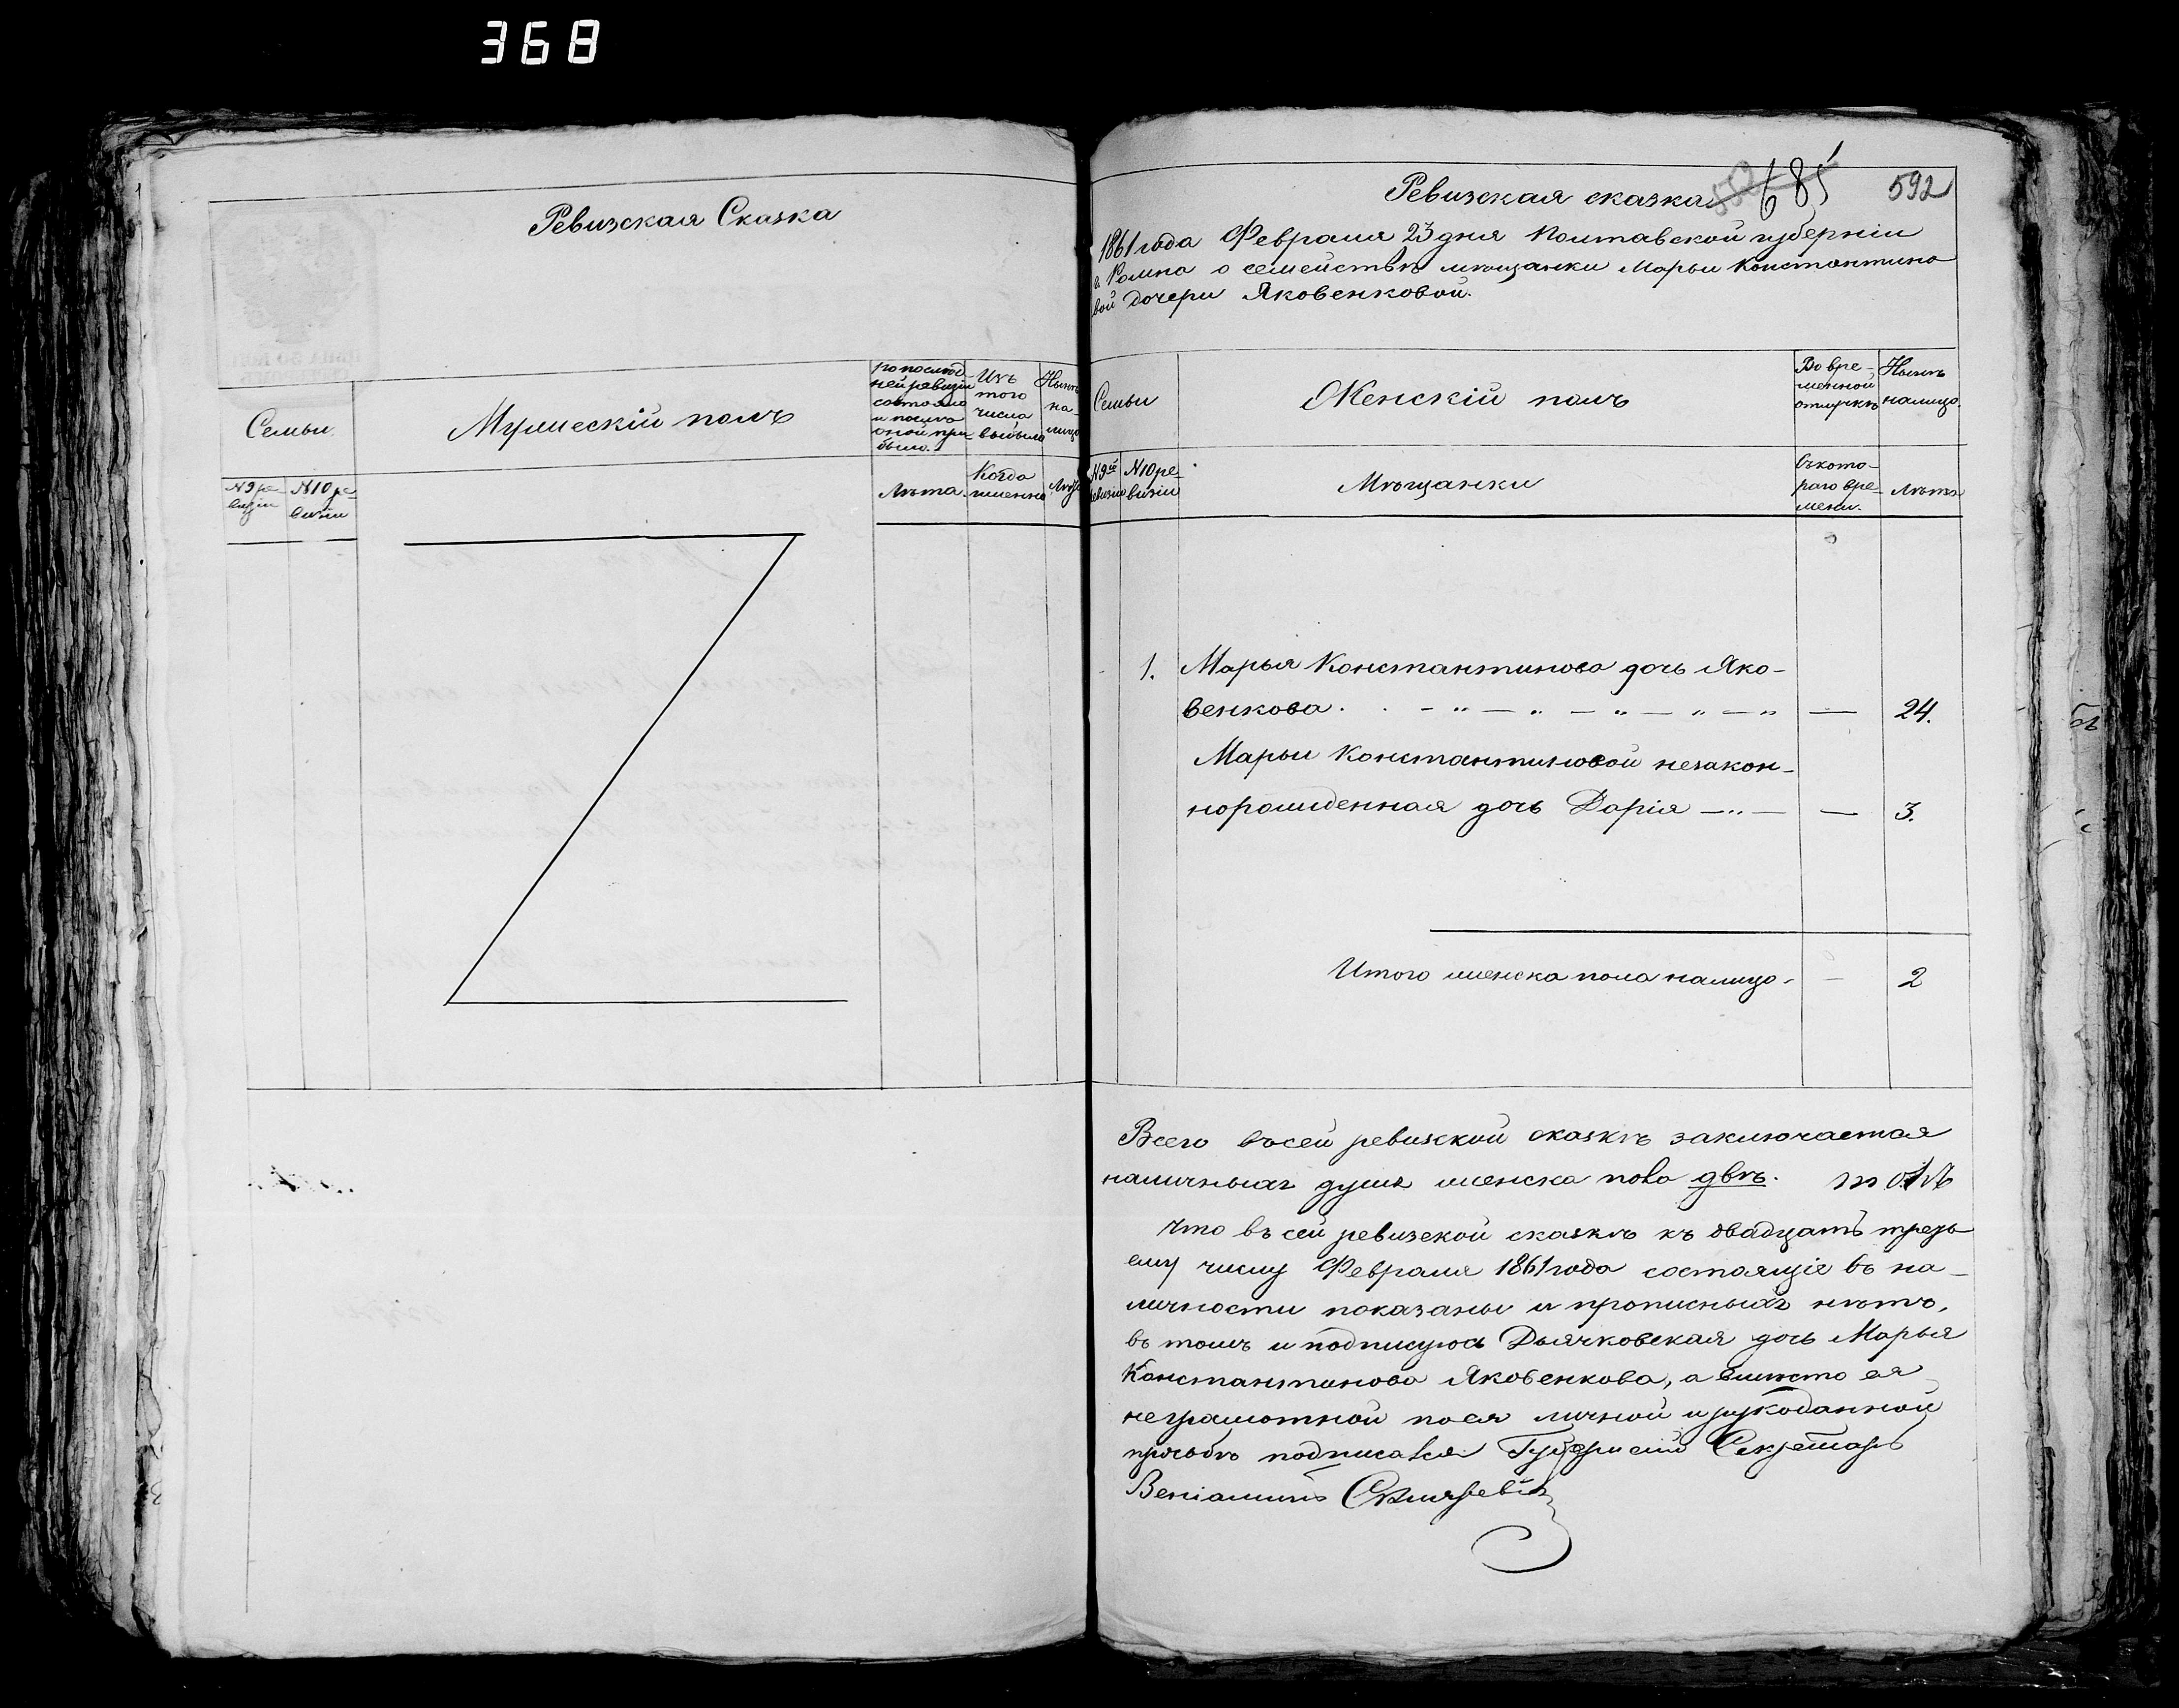 368
Ревизская Сказка
Семьи
Мужескій полъ
по послѣд-
ней ревизіи
состояло
и послѣ
оной при-
было.
Изъ
того
числа
выбыло
Нынѣ
на-
лицо
№ 9 ре-
визіи
№ 10 ре-
визіи
Лѣта.
Когда
именно
Лѣта
Ревизская сказка
685
592
1861 года Февраля 23 дня Полтавской губерніи
г. Ромна о семействѣ мѣщанки Марьи Константино
вой дочери Яковенковой.
Семьи
Женскій полъ
Во вре-
менной
отлучкѣ
Нынѣ
налицо.
№ 9й
ревизіи
№ 10 ре-
визіи
Мѣщанки
Съ кото-
раго вре-
мени.
Лѣта
1. Марья Константинова дочь Яко-
венкова. — 24.
Марьи Константиновой незакон-
норожденная дочь Дарія — — 3.
Итого женска пола налицо - — 2
Всего въ сей ревизской сказкѣ заключается
наличныхъ душъ женска пола двѣ.
Что въ сей ревизской сказкѣ къ двадцать треть
ему числу Февраля 1861 года состоящіе въ на-
личности показаны и прописныхъ нѣтъ,
въ томъ и подписуюсь Дьячковская дочь Марья
Константинова Яковенкова, а вмѣсто ея
неграмотной по ея личной и рукоданной
просьбѣ подписался Губернскій Секретарь
Веніаминъ